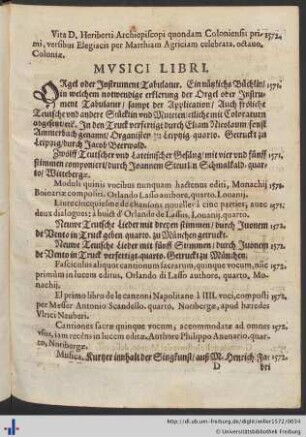 Vita D. Heriberti Archiepiscopi quondam Coloniensis pri- 1572.
mi, versibus Elegiacis per Matthiam Agriciam celebrata. octauo,
Coloniæ.
MVSICI LIBRI.
ORgel oder Instrument Tabulatur. Ein nützlichs Büchlin/ 1571.
in welchem notwendige erklerung der Orgel oder Instru-
ment Tabulatur/ sampt der Application/ Auch fröliche
Teutsche vnd andere Stücklin vnd Muteten/ etliche mit Coloraturn
abgesetzt. In den Truck verfertigt durch Eliam Nicolaum sonst
Ammerbach genannt/ Organisten zu Leipzig. quarto. Getruckt zu
Leipzig/ durch Jacob Beerwald.
Zwölff Teutscher vnd Lateinischer Gesäng/ mit vier vnd fünff 1571.
stimmen componiert/ durch Joannem Steurl. quar-
to/ Wittebergæ.
Moduli quinis vocibus nunquam hactenus editi, Monachij 1571.
Boioariæ compositi. Orlando Lasso authore, quarto, Louanij.
Liure cinquiesme de chansons nouuelles à cinc parties, auec 1571.
deux dialogues: à huict d'Orlande de Lassus. Louanij. quarto.
Newe Teutsche Lieder mit dreyen stimmen/ durch Juonem 1572.
de Vento in Truck geben. quarto. zu München getruckt.
Newe Teutsche Lieder mit fünff Stimmen/ durch Juonem 1572.
de Vento in Truck verfertigt. quarto. Getruckt zu München.
Fasciculus aliquot cantionum sacrarum, quinque vocum, nûc 1572.
primùm in lucem editus, Orlando di Lasso authore, quarto, Mo-
nachij.
El primo libro de le canzoni Napolitano à IIII. voci, composti 1572.
per Messer Antonio Scandello. quarto. Noribergæ, apud hæredes
Vlrici Neuberi.
Cantiones sacræ quinque vocum, accommodatæ ad omnes 1572.
vsus, iam recèns in lucem editæ, Authore Philippo Auenario. quar-
to, Noribergæ.
Musica. Kurtzer innhalt der Singkunst/ auß M. Henrich Fa- 1572.
D bri
http://dl.ub.uni-freiburg.de/diglit/willer1572/0034
© Universitätsbibliothek Freiburg